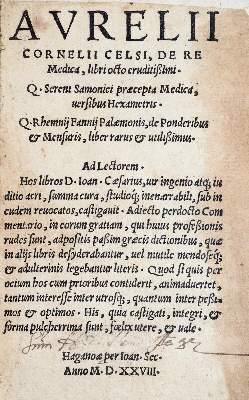 AVRELII
CORNELII CELSI, DE RE
Medica, libri octo eruditissimi.
Q. Sereni Samonici præcepta Medica,
versibus Hexametris.
Q. Rhemnij Fannij Palæmonis, de Ponderibus
& Mensuris, liber rarus & utilissimus.
Ad Lectorem.
Hos libros D. Ioan. Cæsarius, uir ingenio atq; iu
ditio acri, summa cura, studioq; inenarrabili, sub in
cudem reuocatos, castigauit. Adiecto perdocto Com
mentario, in eorum gratiam, qui huius professionis
rudes sunt, adpositis passim græcis dictionibus, quæ
in alijs libris desyderabantur, uel mutilæ mendosæq;
& adulterinis legebantur literis. Quod si quis per
octum hos cum prioribus contulerit, animaduertet,
tantum interesse inter utrosq;, quantum inter pessi
mos & optimos. His, quia castigati, integri, &
forma pulcherrima sunt, fœlix utere, & uale.
Haganoæ per Ioan. Sec.
Anno M. D. XXVIII.